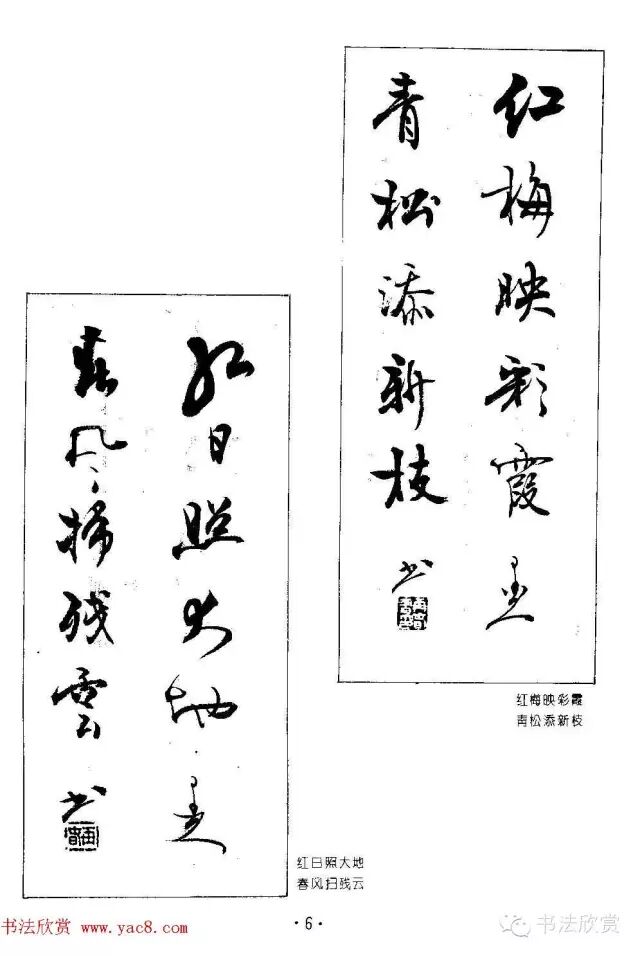 红梅映彩霞
青松添新枝
书
红梅映彩霞
青松添新枝
红日照大地
春风掃残雲
书
红日照大地
春风扫残云
·6·
书法欣赏 www.yac8.com
书法欣赏